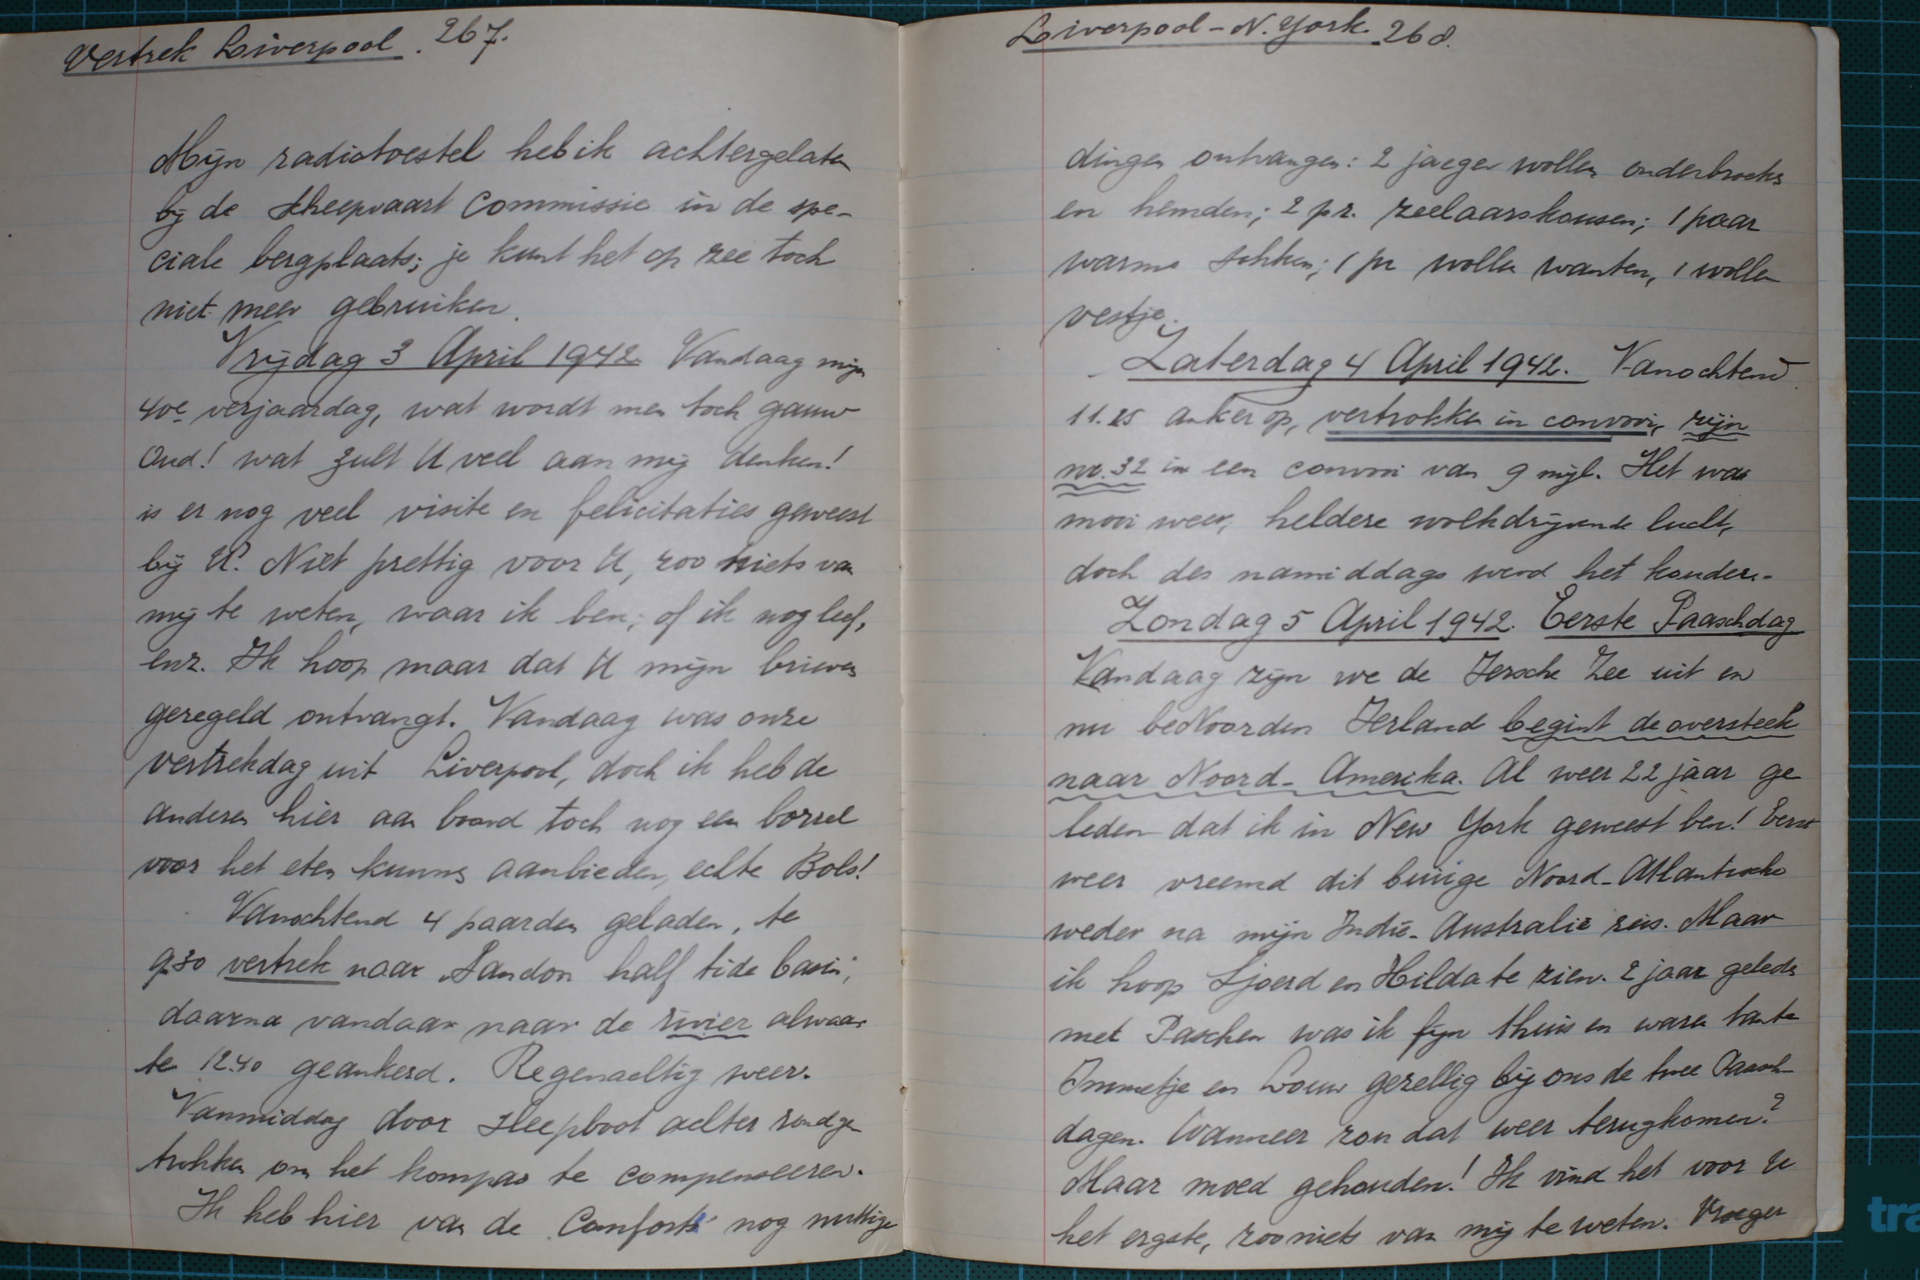 Vertrek Liverpool. 267.
Mijn radiotoestel heb ik achtergelaten
bij de Scheepvaart Commissie in de spe-
ciale bergplaats; je kunt het op zee toch
niet meer gebruiken.
Vrijdag 3 April 1942. Vandaag mijn
40e verjaardag, wat wordt men toch gauw
oud! wat zult U veel aan mij denken!
is er nog veel visite en felicitaties geweest
bij U? Niet prettig voor U, zoo niets van
mij te weten, waar ik ben; of ik nog leef,
enz. Ik hoop maar dat U mijn brieven
geregeld ontvangt. Vandaag was onze
vertrekdag uit Liverpool, doch ik heb de
anderen hier aan boord toch nog een borrel
voor het eten kunnen aanbieden, echte Bols!
Vanochtend 4 paarden geladen, te
9.30 vertrek naar Sandon half tide basin;
daarna vandaar naar de rivier alwaar
te 12.40 geankerd. Regenachtig weer.
Vanmiddag door sleepboot achter rondge
trokken om het kompas te compenseeren.
Ik heb hier van de Comforts nog nuttige
Liverpool - N. York. 268.
dingen ontvangen: 2 jaeger wollen onderbroeks
en hemden; 2 pr. zeelaarskousen; 1 paar
warme sokken; 1 pr wollen wanten, 1 wollen
vestje.
Zaterdag 4 April 1942. Vanochtend
11.25 anker op, vertrokken in convooi, zijn
no. 32 in een convooi van 9 mijl. Het was
mooi weer, heldere wolkdrijvende lucht,
doch des namiddags werd het kouder.-
Zondag 5 April 1942. Eerste Paaschdag
Vandaag zijn we de Iersche Zee uit en
nu beNoorden Ierland begint de oversteek
naar Noord-Amerika. Al weer 22 jaar ge
leden dat ik in New York geweest ben! Eerst
weer vreemd dit buiige Noord-Atlantische
weder na mijn Indië-Australië reis. Maar
ik hoop Sjoerd en Hilda te zien. 2 jaar geleden
met Paschen was ik fijn thuis en waren tante
Immetje en Louw gezellig bij ons de twee Paasch
dagen. Wanneer zou dat weer terugkomen?
Maar moed gehouden! Ik vind het voor U
het ergste, zoo niets van mij te weten. Vroeger
tra